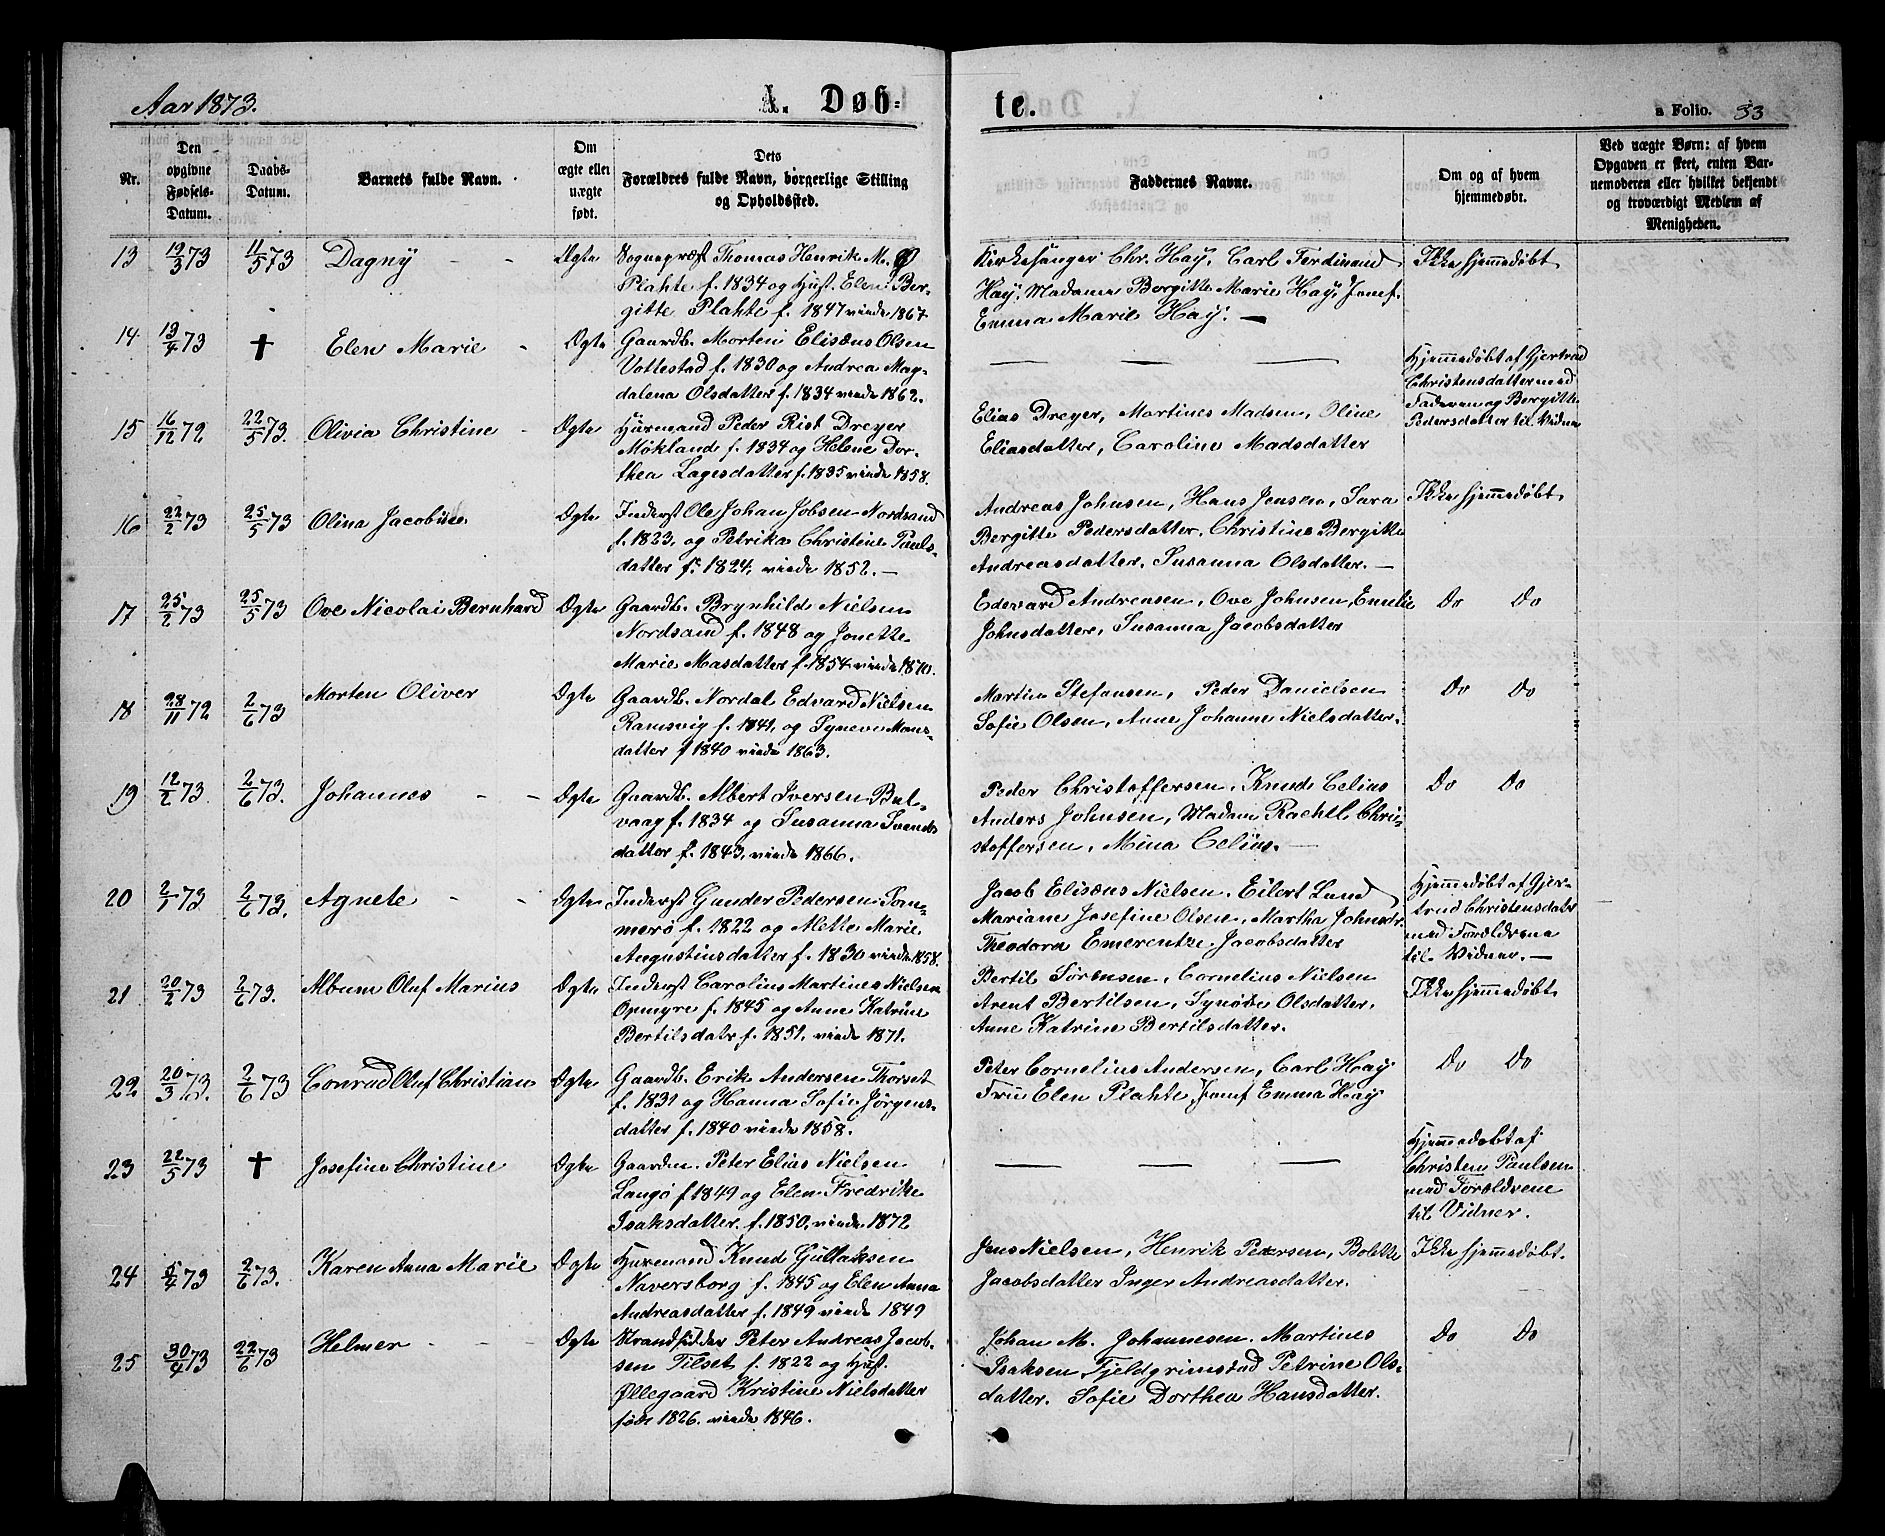 Aar 1873.
A. Døb-
te.
a Folio. 33
Nr.
Den opgivne Fødsels-Datum.
Daabs-Datum.
Barnets fulde Navn.
Om ægte eller uægte født.
Dets Forældres fulde Navn, borgerlige Stilling og Opholdssted.
Faddernes Navne.
Om og af hvem hjemmedøbt.
Ved uægte Børn: af hvem Opgaven er skeet, enten Barnemoderen eller hvilket bekjendt og troværdigt Medlem af Menigheden.
13 19/3 73 11/5 73 Dagny - - Ægte
Sognepræst Thomas Henrik M.
Plahte f. 1834 og Hust. Elen Ber-
gitte Plahte f. 1847 viede 1867.
Kirkesanger Chr. Hay, Carl Ferdinand
Hay, Madame Bergitte Marie Hay, Jomf.
Emma Marie Hay. —
Ikke hjemmedøbt
14 13/4 73 † Elen Marie - Ægte
Gaardb. Morten Elisæus Olsen
Vottestad f. 1830 og Andrea Mag-
dalena Olsdatter f. 1834 viede 1862.
— — —
Hjemmedøbt af Gjertrud
Christensdatter med
Faderen og Bergitte
Pedersdatter til Vidne
15 16/12 72 22/5 73. Olivia Christine - Ægte
Husmand Peder Rist Dreyer
Mökland f. 1834 og Helene Dor-
thea Lagesdatter f. 1835 viede 1858.
Elias Dreyer, Martines Madsen, Oline
Eliasdatter, Caroline Madsdatter
16 22/2 73 25/5 73 Olina Jacobine Ægte
Inderst Ole Johan Jobsen Nordsand
f. 1823, og Petrika Christine Pauls-
datter f. 1824, viede 1852. —
Andreas Johnsen, Hans Jensen, Sara
Bergitte Pedersdatter, Christine Bergitte
Andreasdatter, Susanna Olsdatter. —
Ikke hjemmedøbt
17 25/2 73 25/5 73 Ove Nicolai Bernhard Ægte
Gaardb. Brynhild Nielsen
Nordsand f. 1848 og Jonette
Marie Masdatter f. 1854 viede 1870.
Edevard Andreasen, Ove Johnsen, Emelie
Johnsdatter, Susanna Jacobsdatter
Do Do
18 28/11 72 2/6 73 Morten Oliver Ægte
Gaardb. Nordal Edvard Nielsen
Ramsvig f. 1841, og Syneve Mons-
datter f 1840 viede 1863.
Martin Stefansen, Peder Danielsen
Sofie Olsen, Anne Johanne Nielsdatter.
Do Do
19 12/2 73. 2/6 73. Johannes - - Ægte
Gaardb. Albert Iversen Bul-
vaag f. 1834 og Susanna Svends-
datter f. 1843, viede 1866.
Peder Christoffersen, Knud Celius
Anders Johnsen, Madam Rachel Chri-
stoffersen, Mina Celius. —
Do Do
20 2/1 73 2/6 73. Agnete - - Ægte
Inderst Gunder Pedersen Som-
merø f. 1822 og Mette Marie
Augustinsdatter f. 1830 viede 1858.
Jacob Elisæus Nielsen, Eilert Lund
Mariane Josefine Olsen, Martha Johnsdr.
Theodora Emerentze Jacobsdatter
Hjemmedøbt af Gjer-
trud Christensdater
med Forældrene
til Vidner. —
21 20/2 73 2/6 73. Album Oluf Marius Ægte
Inderst Carolius Martines Nielsen
Opmyre f. 1845 og Anne Katrine
Bertilsdatr f. 1851, viede 1871.
Bertil Sörensen, Cornelius Nielsen
Arent Bertilsen, Synöve Olsdatter,
Anne Katrine Bertilsdatter.
Ikke hjemmedøbt
22 20/3 73. 2/6 73 Conrad Oluf Christian Ægte
Gaardb. Erik Andersen Thorset
f. 1831 og Hanna Sofie Jørgens-
datter f. 1840 viede 1858.
Peter Cornelius Andersen, Carl Hay
Fru Elen Plahte, Jomf Emma Hay
Do Do
23 22/5 73 † Josefine Christine Ægte
Gaardm. Peter Elias Nielsen
Langö f 1849 og Elen Fredrike
Isaksdatter f. 1850, viede 1872
— — —
Hjemmedøbt af
Christen Paulsen
med Forældrene
til Vidner.
24 5/4 73 2/6 73. Karen Anna Marie Ægte
Husmand Knud Gullaksen
Naversborg f. 1845 og Elen Anna
Andreasdatter f. 1849 viede 1849
Jens Nielsen, Henrik Petersen, Bolette
Jacobsdatter Inger Andreasdatter.
Ikke hjemmedøbt.
25 30/4 73 22/6 73 Helmer - - Ægte
Strandsidder Peter Andreas Jacob-
sen Tilset f. 1822 og Hust.
Ollegaard Kristine Nielsdatter
føde 1826. viede 1846.
Johan M. Johannesen, Martines
Isaksen Fjeldgrimstad Petrine Ols-
datter. Sofie Dorthea Hansdatter.
Do Do